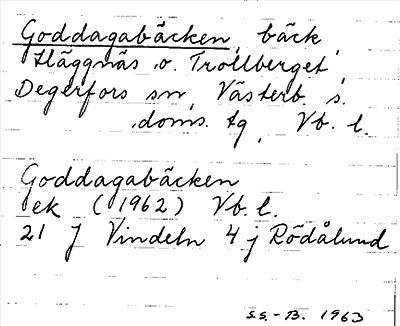 Goddagabäcken, bäck,
Häggnäs o. Trollberget,
Degerfors sn, Västerb. s.
doms. tg, Vb. l.
Goddagabäcken
ek (1962) Vb. l.
21 J Vindeln 4 j Rödålund
S.S.-B. 1963